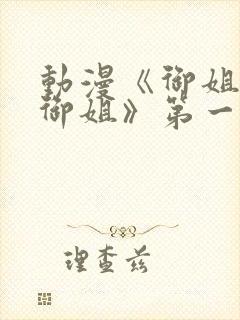 動漫《御姐
御姐》第一
理查兹